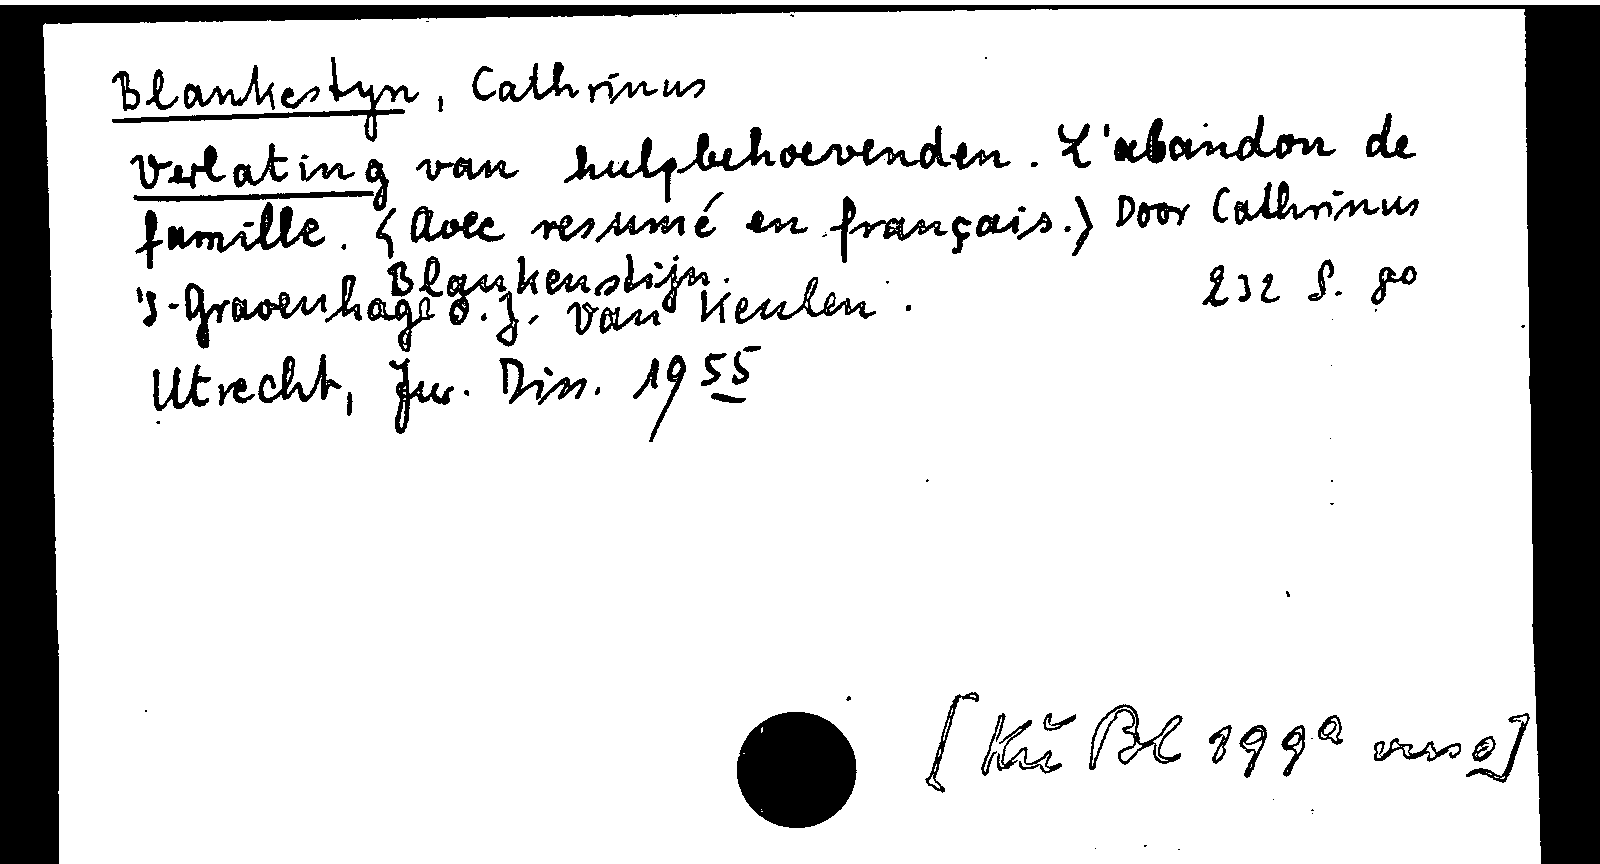 Blankestyn, Cathrinus
Verlating van hulpbehoevenden. L'abandon de
famille. <Avec resumé en français.> Door Cathrinus
Blankenstijn.
's-Gravenhage o.J. van Keulen. 232 S. 8o
Utrecht, Jur. Diss. 1955
[Kü Bl 199a verso]